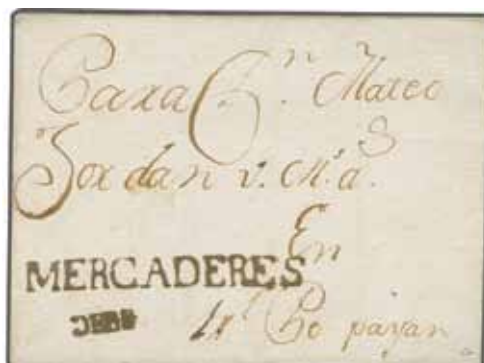 Paxa Dn. Mateo
Jordan v. Ms. as.
En
MERCADERES
DEBE
Popayan